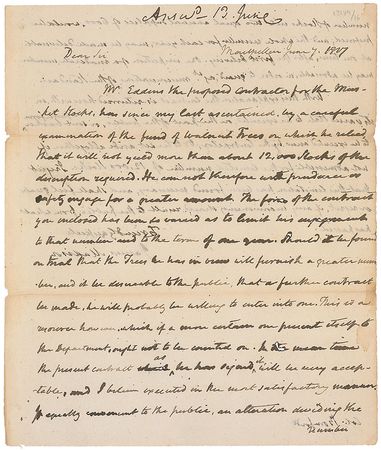 Answd. 13 June
Dear Sir Montpellier June 7. 1827
Mr Eddins the proposed contractor for the Mus-
ket stocks, has since my last ascertained, by a careful
examination of the fund of Walnut Trees on which he relied
that it will not yield more than about 12,000 Stocks of the
description required. He can not therefore with prudence or
safety engage for a greater amount. The form of the contract
you inclosed has been so varied as to limit his engagement
to that number and to the term of one year. Should it be found
on trial that the Trees he has in view will furnish a greater num
ber, and it be desireable to the public, that a further contract
be made, he will probably be willing to enter into one. This is a
resource however, which if a more certain one present itself to
the Department, ought not to be counted on. In the mean time
the present contract as he has signed it will be very accep-
table, and I believe executed in the most satisfactory manner.
If equally convenient to the public, an alteration dividing the
number